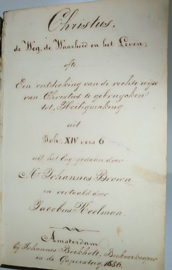 Christus,
de Weg, de Waarheid en het Leven,
of
Een ontdekking van de rechte wijze
van Christus te gebruyken
tot Heiligmaking
uit
Joh. XIV vers 6
uit het Eng. gedaan door
Mr Johannes Brown
en vertaald door
Jacobus Koelman
Amsterdam
bij Johannes Boekholt, Boekverkooper
in de Gapersteeg 1686.